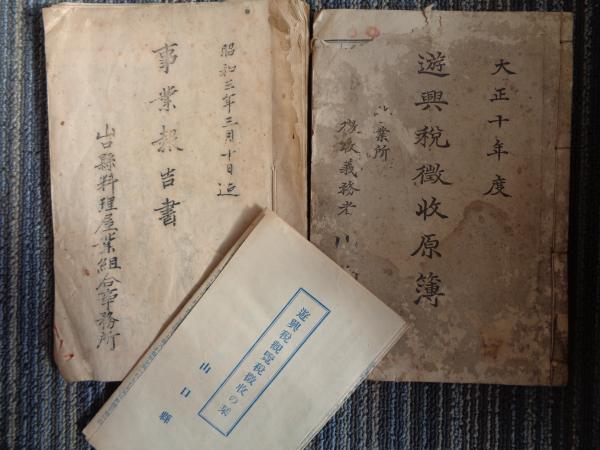 大正十年度
遊興税徴收原簿
業所
徴收義務者
昭和三年三月十日迄
事業報告書
山口縣料理屋業組合事務所
遊興税觀覽税徴收の栞
山口縣